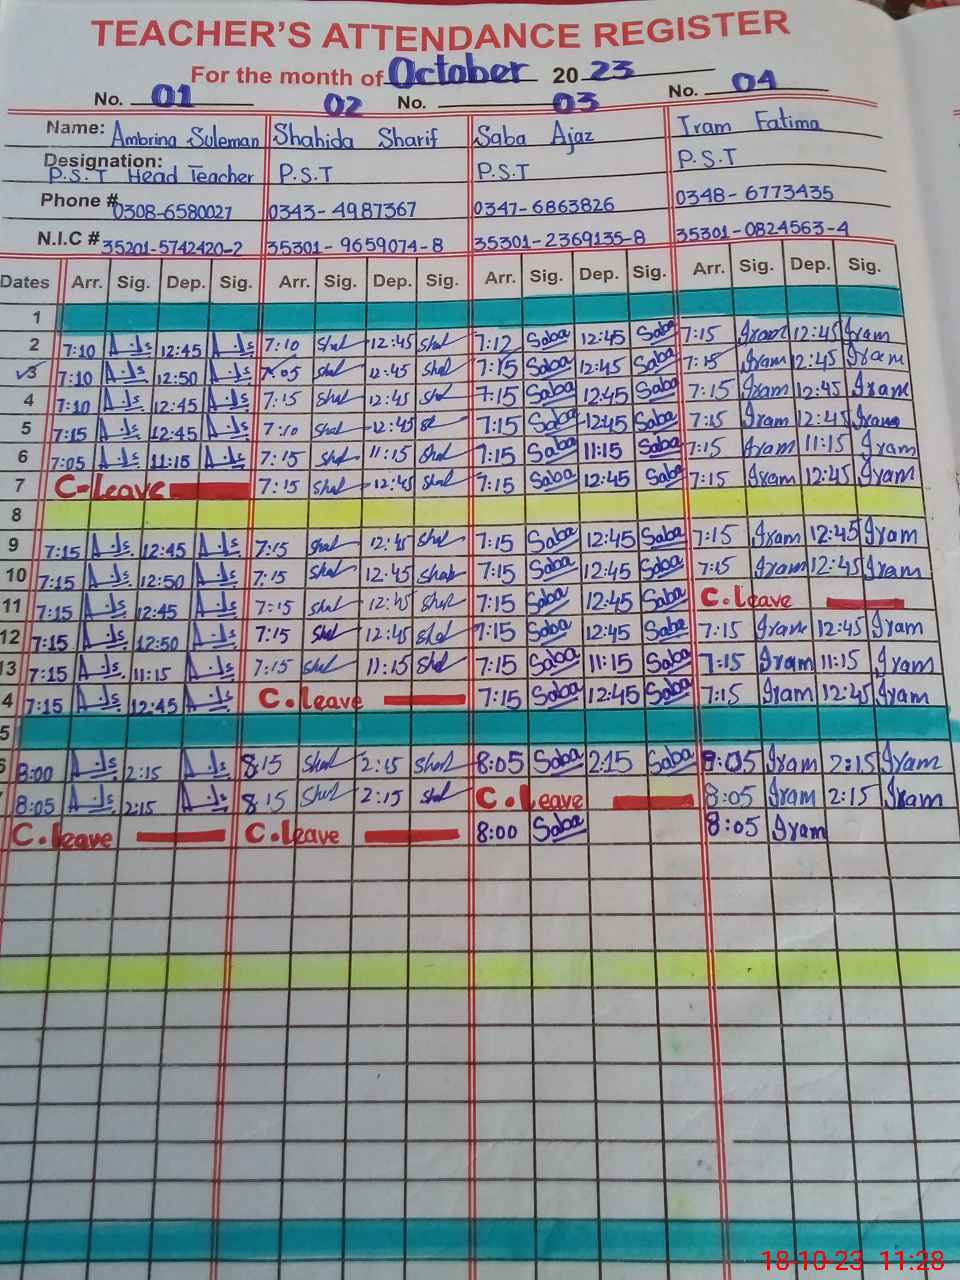 TEACHER'S ATTENDANCE REGISTER
For the month of October 2023
No. 01 02 No. 03 No. 04
Name: Ambrina Suleman Shahida Sharif Saba Ajaz Iram Fatima
Designation:
P.S.T Head Teacher P.S.T P.S.T P.S.T
Phone # 0308-6580027 0343-4987367 0347-6863826 0348-6773435
N.I.C # 35201-5742420-2 35301-9659074-8 35301-2369135-8 35301-0824563-4
Dates Arr. Sig. Dep. Sig. Arr. Sig. Dep. Sig. Arr. Sig. Dep. Sig. Arr. Sig. Dep. Sig.
1
2 7:10 12:45 7:10 12:45 7:12 Saba 12:45 Saba 7:15 Iram 12:45 Iram
3 7:10 12:50 12:45 7:15 Saba 12:45 Saba 7:15 Iram 12:45 Iram
4 7:10 12:45 7:15 12:45 7:15 Saba 12:45 Saba 7:15 Iram 12:45 Iram
5 7:15 12:45 7:10 12:45 7:15 Saba 12:45 Saba 7:15 Iram 12:45 Iram
6 7:05 11:15 7:15 11:15 7:15 Saba 11:15 Saba 7:15 Iram 11:15 Iram
7 C-leave 7:15 12:45 7:15 Saba 12:45 Saba 7:15 Iram 12:45 Iram
8
9 7:15 12:45 7:15 12:45 7:15 Saba 12:45 Saba 7:15 Iram 12:45 Iram
10 7:15 12:50 7:15 12:45 7:15 Saba 12:45 Saba 7:15 Iram 12:45 Iram
11 7:15 12:45 7:15 12:45 7:15 Saba 12:45 Saba C.leave
12 7:15 12:50 7:15 12:45 7:15 Saba 12:45 Saba 7:15 Iram 12:45 Iram
13 7:15 11:15 7:15 11:15 7:15 Saba 11:15 Saba 7:15 Iram 11:15 Iram
4 7:15 12:45 C.leave 7:15 Saba 12:45 Saba 7:15 Iram 12:45 Iram
5
6 8:00 2:15 8:15 2:15 8:05 Saba 2:15 Saba 8:05 Iram 2:15 Iram
8:05 2:15 8:15 2:15 C.leave 8:05 Iram 2:15 Iram
C.leave C.leave 8:00 Saba 8:05 Iram
18-10-23 11:28